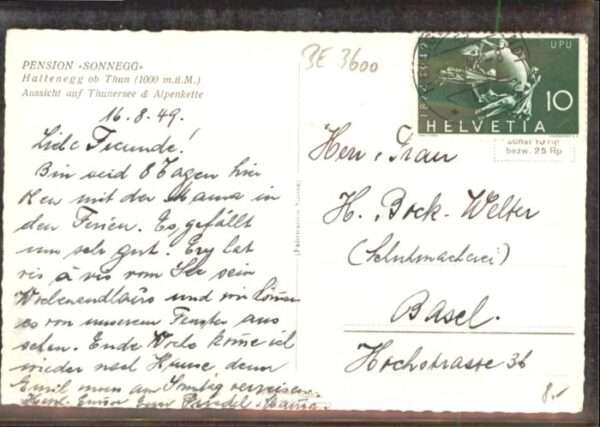 PENSION «SONNEGG»
Hattenegg ob Thun (1000 m.ü.M.)
Aussicht auf Thunersee & Alpenkette
BE 3600
UPU
10
HELVETIA
bezw. 25 Rp
16.8.49.
Liebe Freunde!
Bin seid 8 Tagen hier
oben mit der Mama in
den Ferien. Es gefällt
uns sehr gut. Ery hat
vis à vis vom See sein
Wochenendhaus und wir können
es von unserem Fenster aus
sehen. Ende Woche komme ich
wieder nach Hause, denn
Emil muss am Sonntag verreisen.
Herzl.
Herr u. Frau
H. Bock-Welter
(Schuhmacherei)
Basel.
Hochstrasse 36
8.-